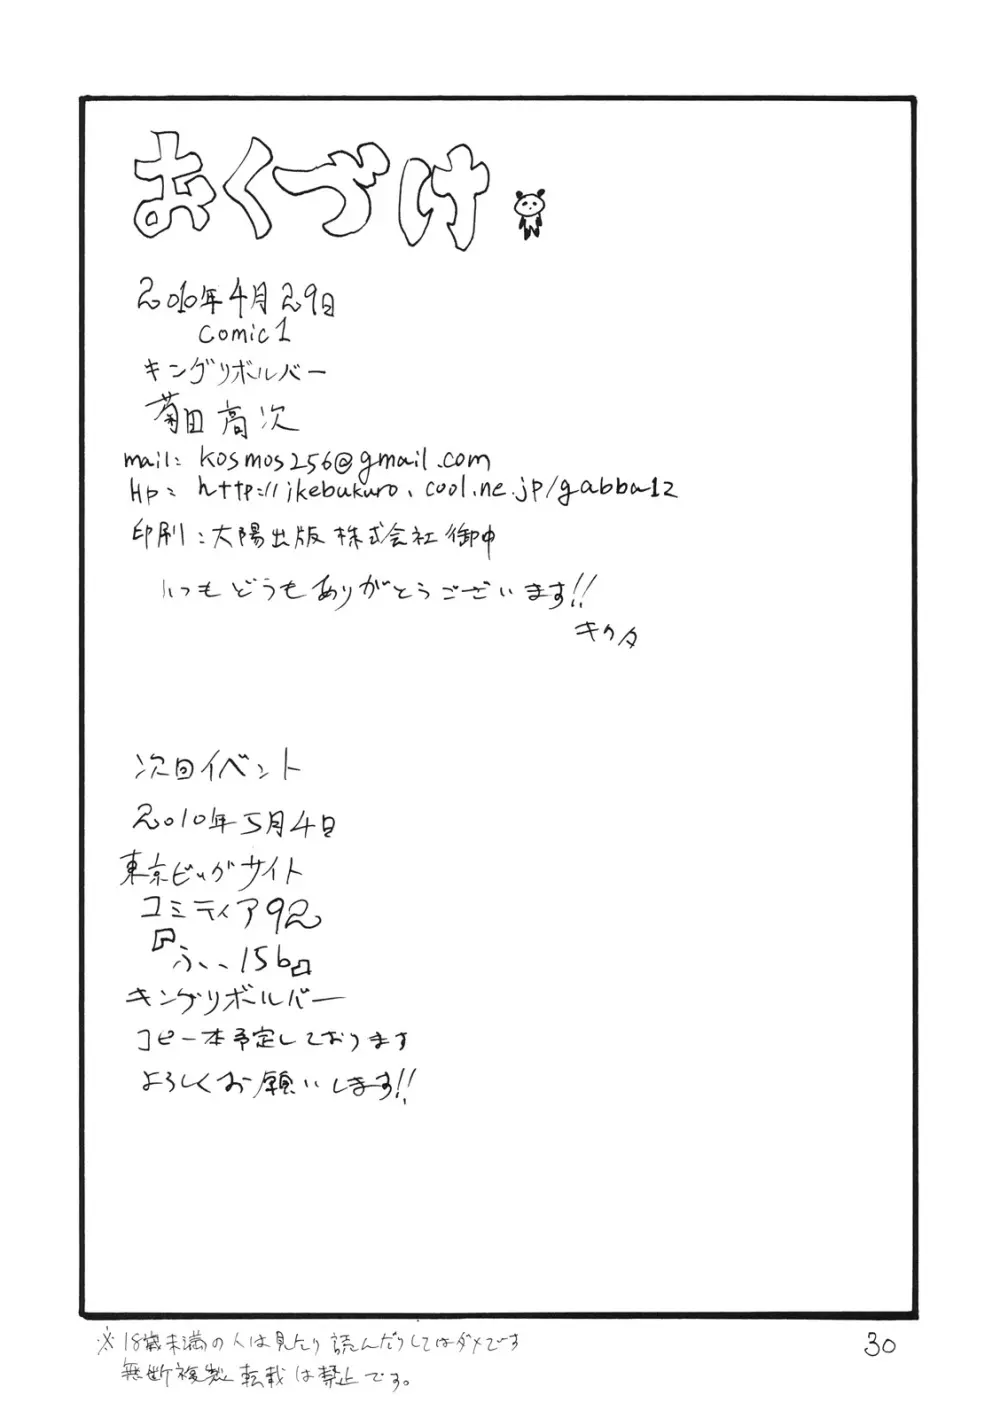 おくづけ
2010年4月29日
comic1
キングリボルバー
菊田 高次
mail: kosmos256@gmail.com
Hp: http://ikebukuro.cool.ne.jp/gabba12
印刷:大陽出版 株式会社 御中
いつも どうも ありがとうございます!!
キクタ
次回イベント
2010年5月4日
東京ビッグサイト
コミティア92
『ふ 15b』
キングリボルバー
コピー本予定しております
よろしくお願いします!!
※18歳未満の人は見たり読んだりしてはダメです
無断複製転載は禁止です。
30